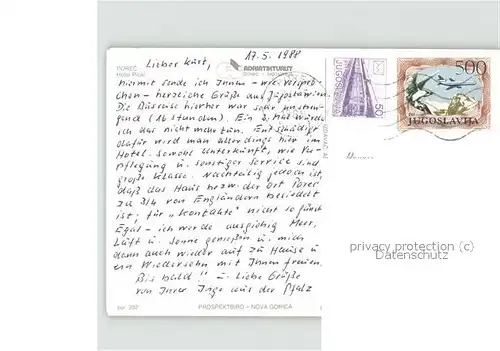 17.5.1988
POREČ
Hotel Pical
ADRIATIKTURIST
Lieber Kurt,
hiermit sende ich Ihnen – wie verspro-
chen – herzliche Grüße aus Jugoslawien.
Die Busreise hierher war sehr anstren-
gend (16 Stunden). Ein 2. Mal würde
ich das nicht mehr tun. Entschädigt
dafür wird man allerdings hier im
Hotel. Sowohl Unterkunft, wie Ver-
pflegung u. sonstiger Service sind
große Klasse. Nachteilig jedoch ist,
daß das Haus bzw. der Ort Porec
zu 3/4 von Engländern besiedelt
ist; für "Kontakte" nicht so günst
Egal – ich werde ausgiebig Meer,
Luft u. Sonne genießen u. mich
dann auch wieder auf zu Hause u
ein Wiedersehn mit Ihnen freuen.
Bis bald!! u. Liebe Grüße
von Ihrer Inge aus der Pfalz
PROSPEKTBIRO – NOVA GORICA
JUGOSLAVIJA
50
500
JUGOSLAVIJA
privacy protection (c)
Datenschutz